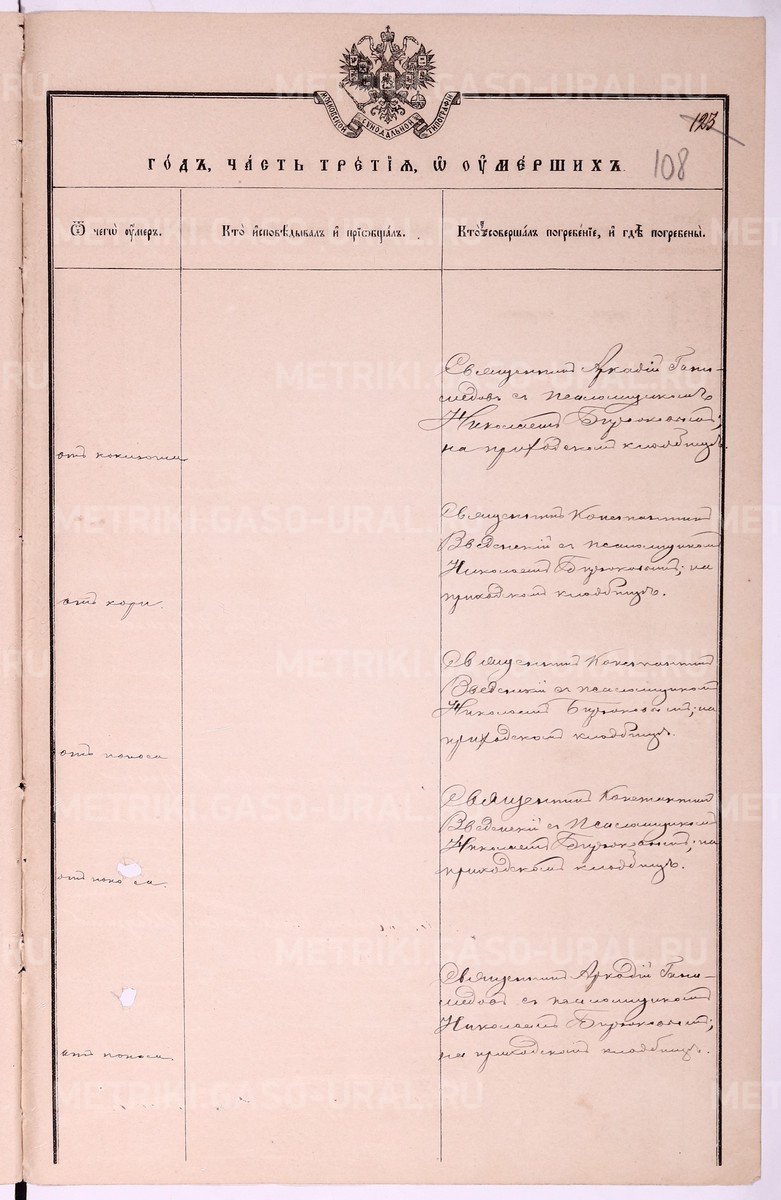 МОСКОВСКОЙ СѴНОДАЛЬНОЙ ТИПОГРАФІИ
123
108
ГО́ДЪ, ЧА́СТЬ ТРЕ́ТІѦ, Ѡ҆ ОУ҆МЕ́РШИХЪ.
Ѿ чегѡ̀ оу҆́меръ.
Кто̀ и҆сповѣ́дывалъ и҆ прїѡбща́лъ.
Кто̀ соверша́лъ погребе́нїе, и҆ гдѣ̀ погребены̀.
Священникъ Аркадій Гани-
медовъ съ псаломщикомъ
Николаемъ Бирюковымъ;
на приходскомъ кладбищѣ.
отъ коклюша
Священникъ Константинъ
Введенскій съ псаломщикомъ
Николаемъ Бирюковымъ; на
приходскомъ кладбищѣ.
отъ кори.
Священникъ Константинъ
Введенскій съ псаломщикомъ
Николаемъ Бирюковымъ; на
приходскомъ кладбищѣ.
отъ поноса
Священникъ Константинъ
Введенскій съ псаломщикомъ
Николаемъ Бирюковымъ; на
приходскомъ кладбищѣ.
отъ поноса.
Священникъ Аркадій Гани-
медовъ съ псаломщикомъ
Николаемъ Бирюковымъ;
на приходскомъ кладбищѣ.
отъ поноса
METRIKI.GASO-URAL.RU